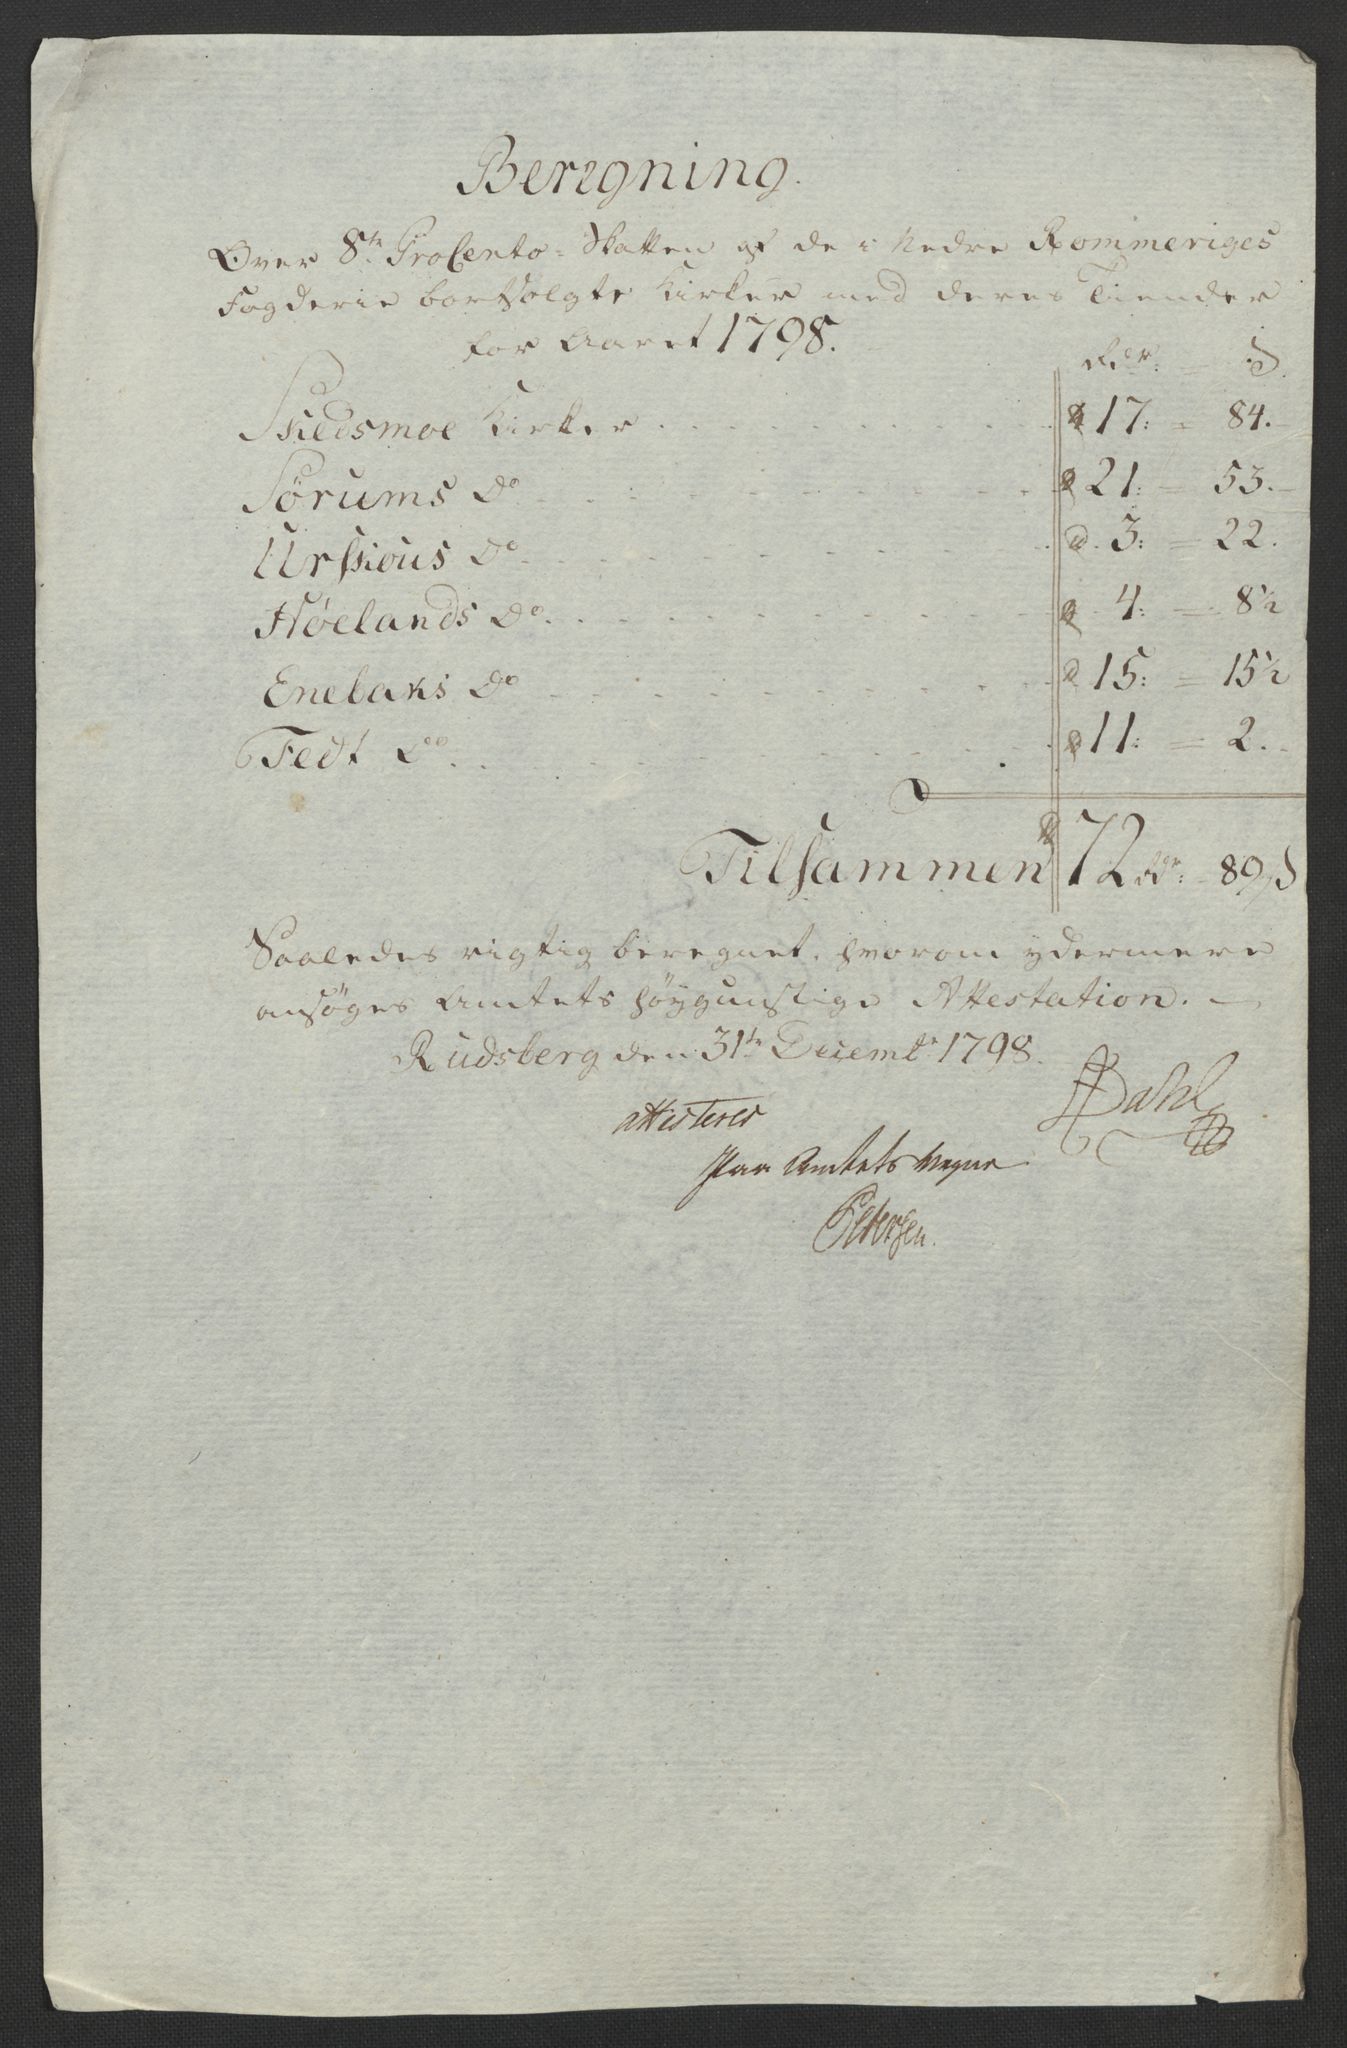 Beregning.
Over 8te ProCento-Skatten af de i Nedre Rommeriges
Fogderie bortsolgte Kirker med deres Tiender
for Aaret 1798.
Rdr: = S.
Skiedsmoe Kirker . . . 17: = 84.
Sørums Do . . . 21: = 53.
Urskious Do . . . 3: = 22.
Høelands Do . . . 4: = 8½
Enebaks Do . . . 15: = 15½
Fedt Do . . . 11: = 2.
Tilsammen 72 Rdr: 89 S
Saaledes rigtig beregnet, hvorom ydermere
ansøges Amtets høygunstige Attestation. —
Rudsberg den 31te Decembr 1798.
Dahl
attesteres
paa Amtets Vegne
Petersen.